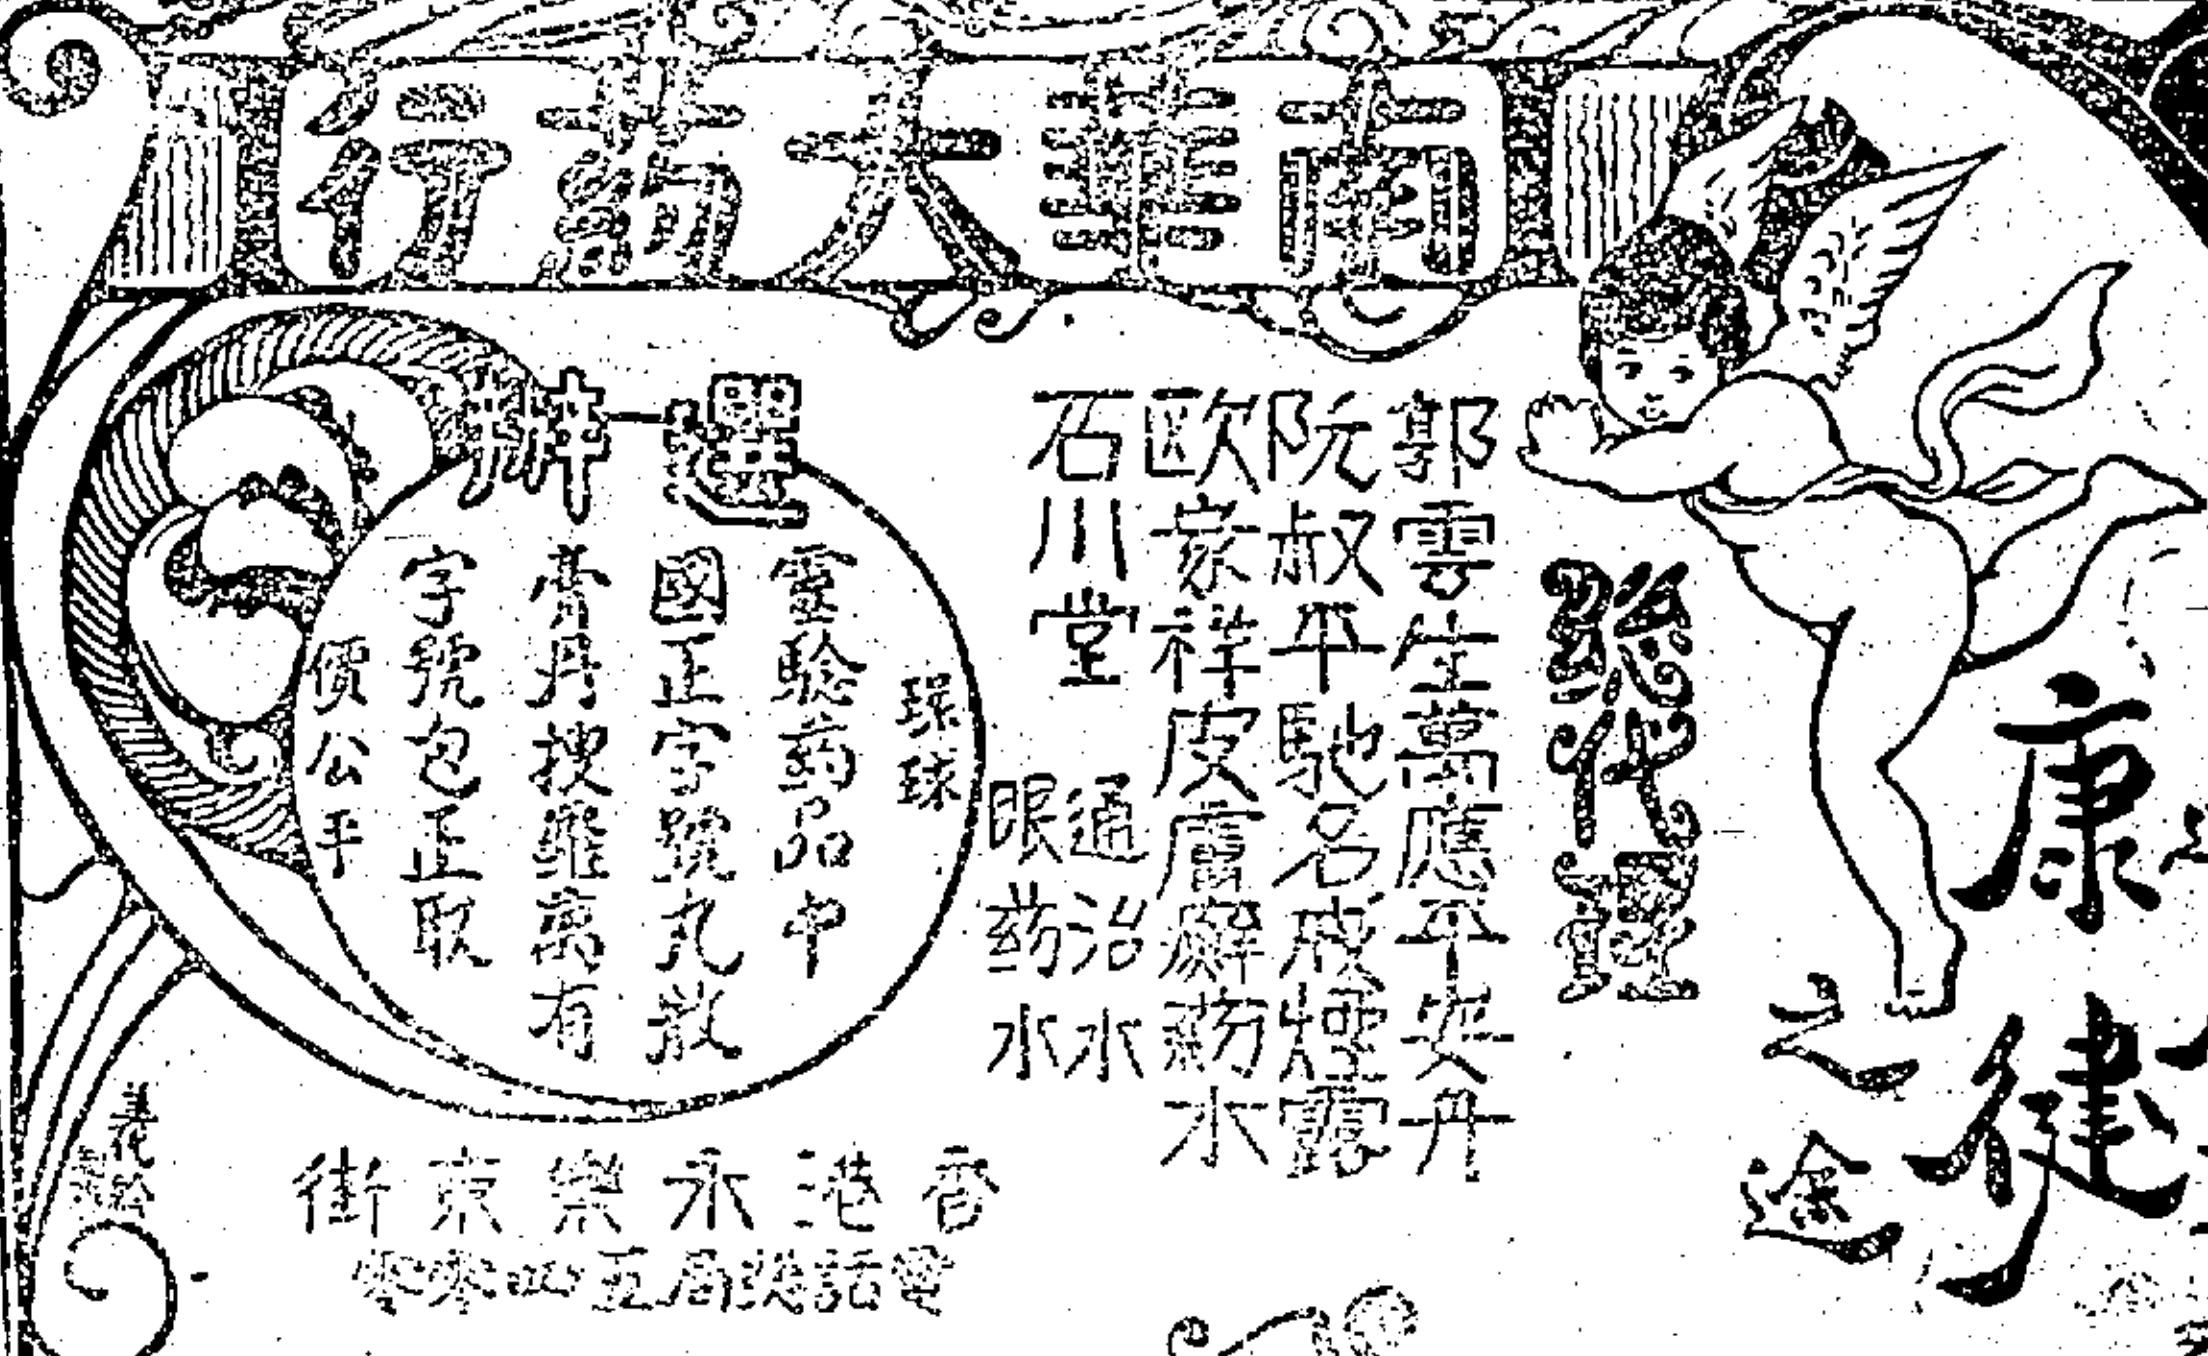 南華大葯行
康健
之途
總代理
郭雲生萬應平安丹
阮叔平馳名戒煙露
歐家祥皮膚癬葯水
石川堂
通治水
眼葯水
選辦
環球
靈驗葯品中
國正字號丸散
膏丹搜羅萬有
字號包正取
價公平
香港永樂東街
電話總局五四